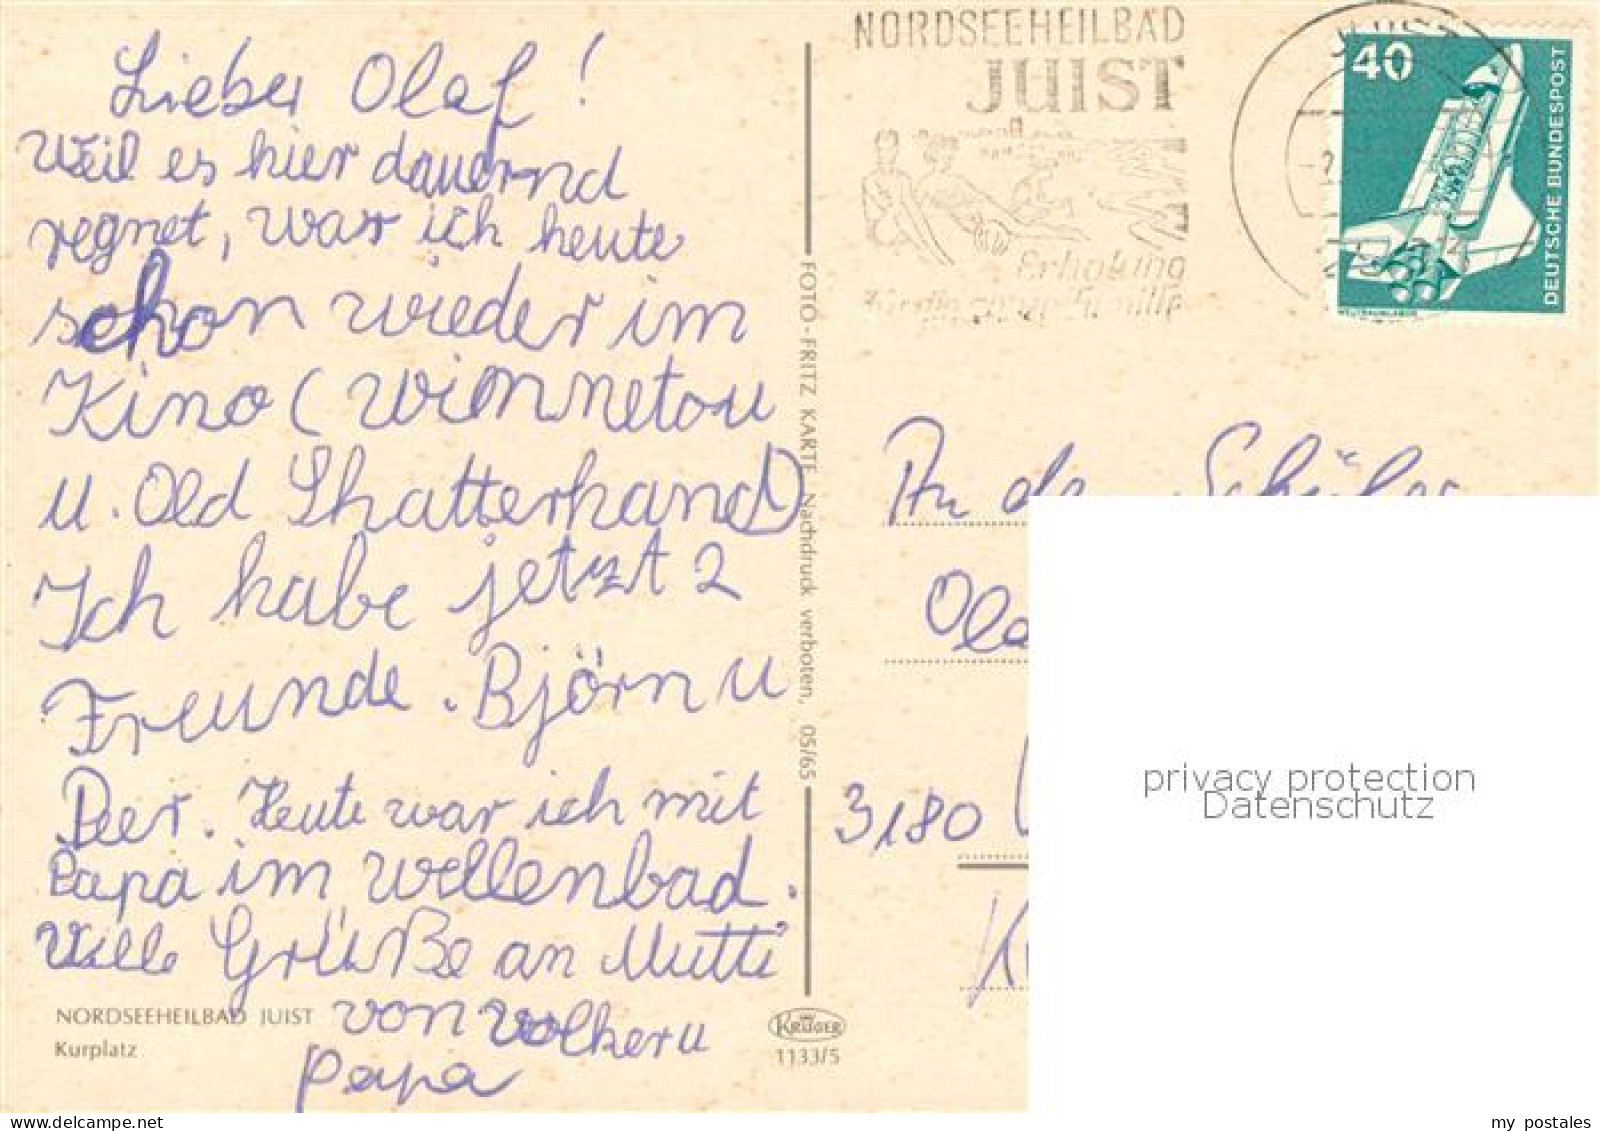 Lieber Olaf!
Weil es hier dauernd
regnet, war ich heute
schon wieder im
Kino (Winnetou
u. Old Shatterhand)
Ich habe jetzt 2
Freunde. Björn u
Peer. Heute war ich mit
Papa im Wellenbad.
Viele Grüße an Mutti
von Volker u
Papa
NORDSEEHEILBAD JUIST
Kurplatz
FOTO-FRITZ KARTE Nachdruck verboten, 05/65
KRÜGER
1133/5
NORDSEEHEILBAD
JUIST
Erholung
für die ganze Familie
JUIST
40
DEUTSCHE BUNDESPOST
WELTRAUMLABOR
An de Schüler
Ola
3180
privacy protection
Datenschutz
my postales